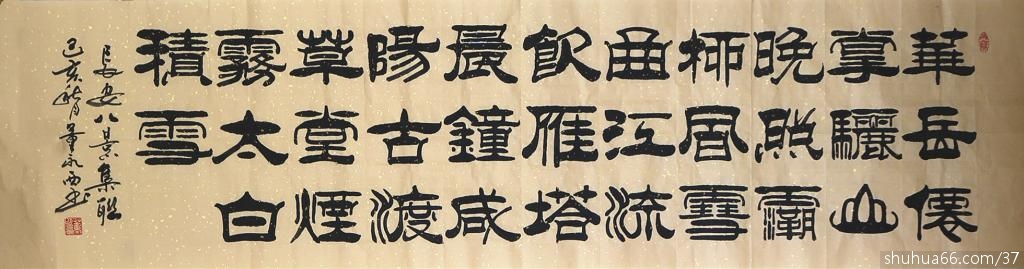 華岳僊
掌驪山
晚照灞
柳風雪
曲江流
飲雁塔
晨鐘咸
陽古渡
草堂煙
霧太白
積雪
長安八景集聯
己亥秋月
shuhua66.com/37